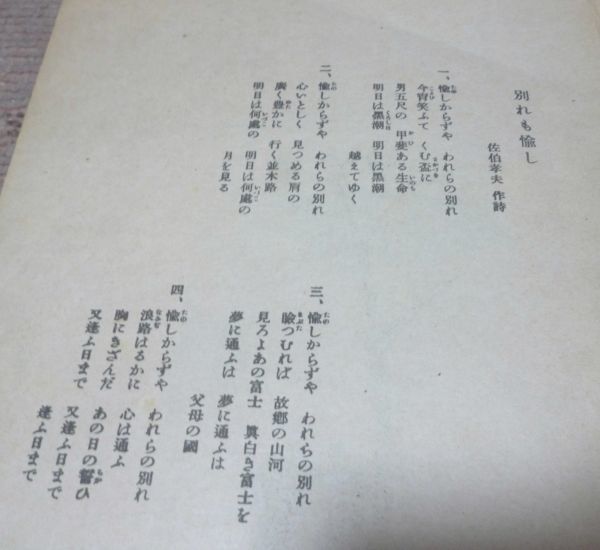 別れも愉し
佐伯孝夫 作詩
一、愉しからずや われらの別れ
今宵笑ふて くむ盃に
男五尺の 甲斐ある生命
明日は黒潮 明日は黒潮
越えてゆく
二、愉しからずや われらの別れ
心いとしく 見つめる肩の
廣く豊かに 行く並木路
明日は何處の 明日は何處の
月を見る
三、愉しからずや われらの別れ
瞼つむれば 故郷の山河
見ろよあの富士 眞白き富士を
夢に通ふは 夢に通ふは
父母の國
四、愉しからずや われらの別れ
浪路はるかに 心は通ふ
胸にきざんだ あの日の誓ひ
又逢ふ日まで 又逢ふ日まで
逢ふ日まで